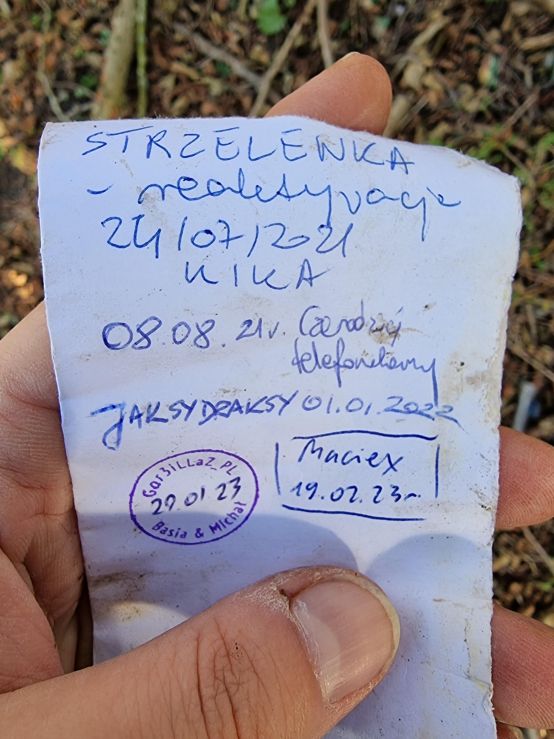 STRZELENKA
- reaktywacja
24/07/2021
KIKA
08.08.21r. Czarodziej
telefoniczny
JAKSYDRAKSY 01.01.2022
Gor3iLLaZ_PL
29.01 23
Basia & Michał
Maciex
19.02.23r.